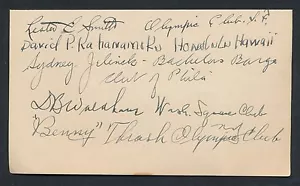 Lester E Smith Olympic Club. S.F.
David P. Kahanamoku Honolulu Hawaii
Sydney Jelinek - Bachelors Barge
Club of Phila
Wash. Square Club
"Benny" Thrash Olympic Club